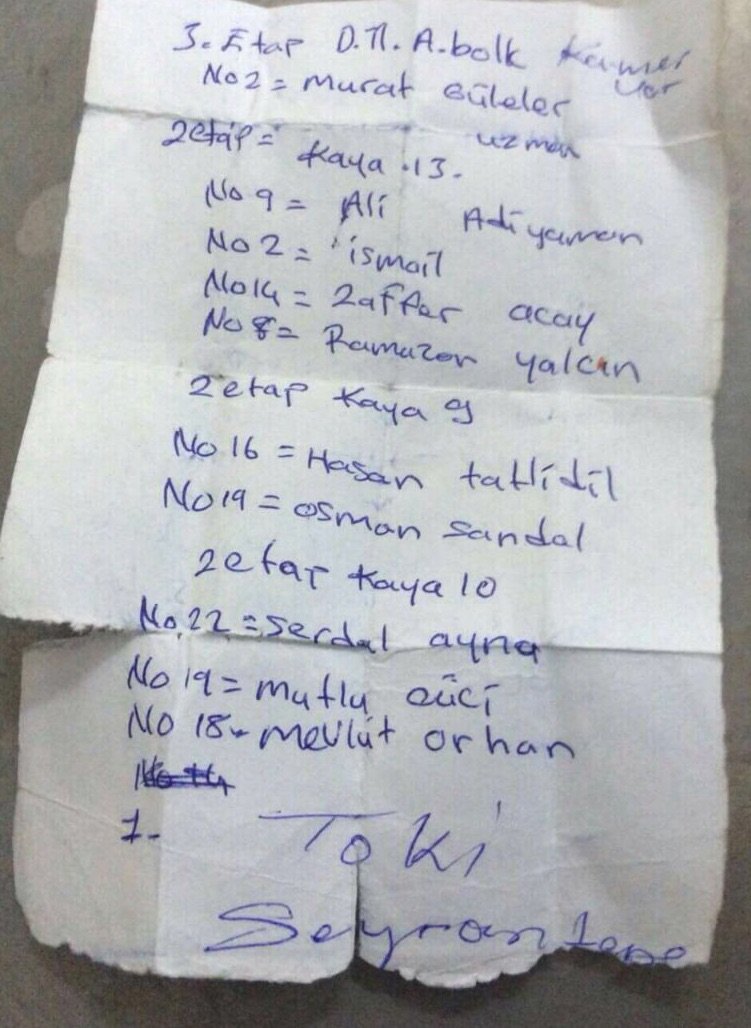 3. Etap D.П. A.bolk Kamer var
No 2 = murat Güleler
uzman
2etap = Kaya .13.
No 9 = Ali Adiyaman
No 2 = ismail
No 14 = Zaffer acay
No 8 = Ramazan yalcın
2etap Kaya 9
No 16 = Hasan tatlidil
No 19 = osman sandal
2etap Kaya 10
No 22 = serdal ayna
No 19 = mutlu
No 18 - mevlüt orhan
1.
Toki
Seyrantepe